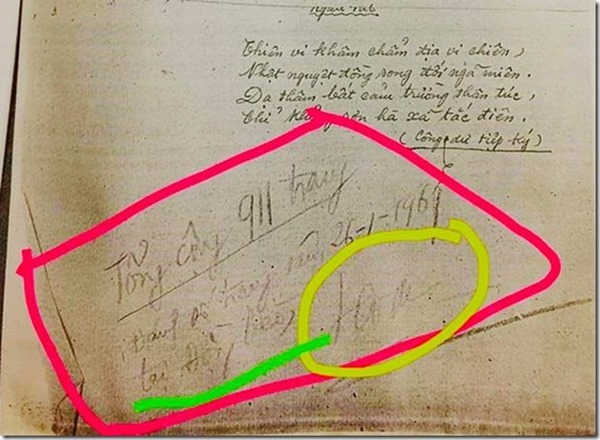 Ngẫu-hứt
Thiên vi khâm chẩm địa vi chiên,
Nhật nguyệt đồng song đối ngã miên.
Dạ thâm bất cảm trường thân túc,
Chỉ khủng sơn hà xã tắc điên.
(Công dư tiệp ký)
Tổng cộng 911 trang
đánh số trang 26-1-1969
tại